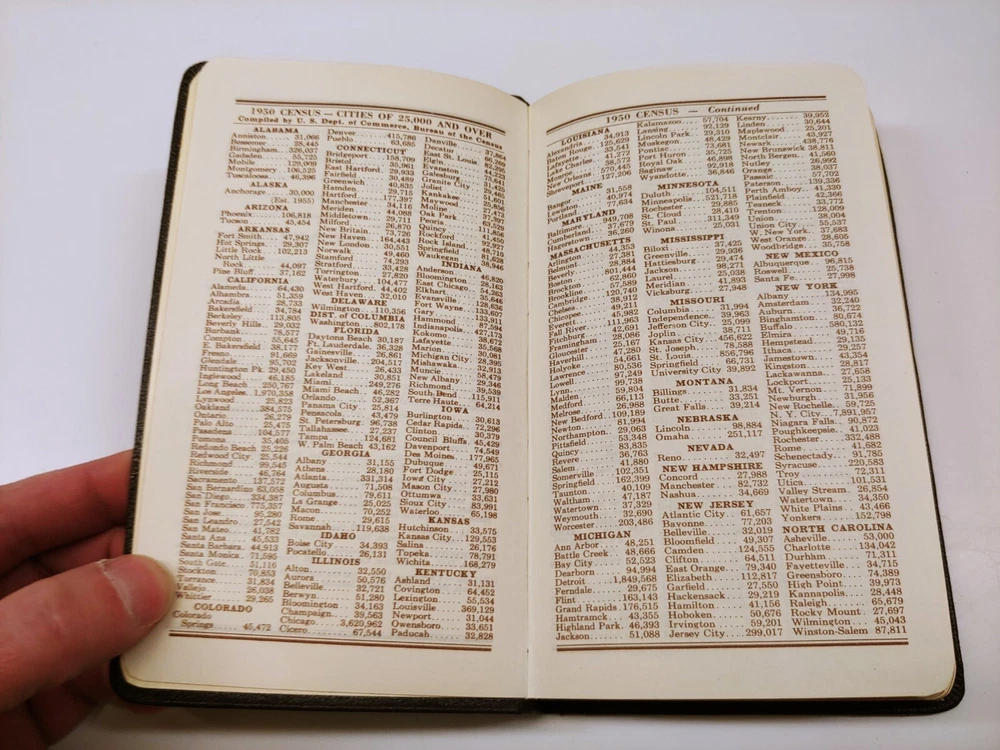 1950 CENSUS — CITIES OF 25,000 AND OVER
Compiled by U. S. Dept. of Commerce, Bureau of the Census
ALABAMA
Anniston 31,066
Bessemer 28,445
Birmingham 326,037
Gadsden 55,725
Mobile 129,009
Montgomery 106,525
Tuscaloosa 46,396
ALASKA
Anchorage 30,000
(Est. 1955)
ARIZONA
Phoenix 106,818
Tucson 45,454
ARKANSAS
Fort Smith 47,942
Hot Springs 29,307
Little Rock 102,213
North Little
Rock 44,097
Pine Bluff 37,162
CALIFORNIA
Alameda 64,430
Alhambra 51,359
Arcadia 28,733
Bakersfield 34,784
Berkeley 113,805
Beverly Hills 29,032
Burbank 78,577
Compton 55,645
E. Bakersfield 38,177
Fresno 91,669
Glendale 95,702
Huntington Pk. 29,450
Inglewood 46,185
Long Beach 250,767
Los Angeles 1,970,358
Lynwood 25,823
Oakland 384,575
Ontario 26,279
Palo Alto 25,475
Pasadena 104,577
Pomona 35,405
Redondo Beach 25,226
Redwood City 25,544
Richmond 99,545
Riverside 46,764
Sacramento 137,572
San Bernardino 63,058
San Diego 334,387
San Francisco 775,357
San Jose 95,280
San Leandro 27,542
San Mateo 41,782
Santa Ana 45,533
Santa Barbara 44,913
Santa Monica 71,595
South Gate 51,116
Stockton 70,853
Torrance 31,834
Vallejo 26,038
Whittier 29,265
COLORADO
Colorado
Springs 45,472
Denver 415,786
Pueblo 63,685
CONNECTICUT
Bridgeport 158,709
Bristol 35,961
East Hartford 29,933
Fairfield 30,489
Greenwich 40,835
Hamden 29,715
Hartford 177,397
Manchester 34,116
Meriden 44,088
Middletown 29,711
Milford 26,870
New Britain 73,726
New Haven 164,443
New London 30,551
Norwalk 49,460
Stamford 74,293
Stratford 33,428
Torrington 27,820
Waterbury 104,477
West Hartford 44,402
West Haven 32,010
DELAWARE
Wilmington 110,356
DIST. OF COLUMBIA
Washington 802,178
FLORIDA
Daytona Beach 30,187
Ft. Lauderdale 36,328
Gainesville 26,861
Jacksonville 204,517
Key West 26,433
Lakeland 30,851
Miami 249,276
Miami Beach 46,282
Orlando 52,367
Panama City 25,814
Pensacola 43,479
St. Petersburg 96,738
Tallahassee 27,237
Tampa 124,681
W. Palm Beach 43,162
GEORGIA
Albany 31,155
Athens 28,180
Atlanta 331,314
Augusta 71,508
Columbus 79,611
La Grange 25,025
Macon 70,252
Rome 29,615
Savannah 119,638
IDAHO
Boise City 34,393
Pocatello 26,131
ILLINOIS
Alton 32,550
Aurora 50,576
Belleville 32,721
Berwyn 51,280
Bloomington 34,163
Champaign 39,563
Chicago 3,620,962
Cicero 67,544
Danville 37,864
Decatur
East St. Louis
Elgin
Evanston
Galesburg 31,425
Granite City
Joliet
Kankakee
Maywood
Moline
Oak Park 63,529
Peoria 111,856
Quincy 41,450
Rockford 92,927
Rock Island 48,710
Springfield 81,628
Waukegan 38,946
INDIANA
Anderson 46,820
Bloomington 28,163
East Chicago 54,263
Elkhart 35,646
Evansville 128,636
Fort Wayne 133,607
Gary 133,911
Hammond 87,594
Indianapolis 427,173
Kokomo 38,672
Lafayette 35,568
Marion 30,081
Michigan City 28,395
Mishawaka 32,913
Muncie 58,479
New Albany 29,346
Richmond 39,539
South Bend 115,911
Terre Haute 64,214
IOWA
Burlington 30,613
Cedar Rapids 72,296
Clinton 30,379
Council Bluffs 45,429
Davenport 74,549
Des Moines 177,965
Dubuque 49,671
Fort Dodge 25,115
Iowa City 27,212
Mason City 27,980
Ottumwa 33,631
Sioux City 83,991
Waterloo 65,198
KANSAS
Hutchinson 33,575
Kansas City 129,553
Salina 26,176
Topeka 78,791
Wichita 168,279
KENTUCKY
Ashland 31,131
Covington 64,452
Lexington 55,534
Louisville 369,129
Newport 31,044
Owensboro 33,651
Paducah 32,828
1950 CENSUS — Continued
LOUISIANA
Alexandria 34,913
Baton Rouge 125,629
Lafayette 33,541
Lake Charles 41,272
Monroe 38,572
New Orleans 570,445
Shreveport 127,206
MAINE
Bangor 31,558
Lewiston 40,974
Portland 77,634
MARYLAND
Baltimore 949,708
Cumberland 37,679
Hagerstown 36,260
MASSACHUSETTS
Arlington 44,353
Belmont 27,381
Beverly 28,884
Boston 801,444
Brockton 62,860
Brookline 57,589
Cambridge 120,740
Chelsea 38,912
Chicopee 49,211
Everett 45,982
Fall River 111,963
Fitchburg 42,691
Framingham 28,086
Gloucester 25,167
Haverhill 47,280
Holyoke 54,661
Lawrence 80,536
Lowell 97,249
Lynn 99,738
Malden 59,804
Medford 66,113
Melrose 26,988
New Bedford 109,189
Newton 81,994
Northampton 29,063
Pittsfield 53,348
Quincy 83,835
Revere 36,763
Salem 41,880
Somerville 102,351
Springfield 162,399
Taunton 40,109
Waltham 47,187
Watertown 37,329
Weymouth 32,690
Worcester 203,486
MICHIGAN
Ann Arbor 48,251
Battle Creek 48,666
Bay City 52,523
Dearborn 94,994
Detroit 1,849,568
Ferndale 29,675
Flint 163,143
Grand Rapids 176,515
Hamtramck 43,355
Highland Park 46,393
Jackson 51,088
Kalamazoo 57,704
Lansing 92,129
Lincoln Park 29,310
Muskegon 48,429
Pontiac 73,681
Port Huron 35,725
Royal Oak 46,898
Saginaw 92,918
Wyandotte 36,846
MINNESOTA
Duluth 104,511
Minneapolis 521,718
Rochester 29,885
St. Cloud 28,410
St. Paul 311,349
Winona 25,031
MISSISSIPPI
Biloxi 37,425
Greenville 29,936
Hattiesburg 29,474
Jackson 98,271
Laurel 25,038
Meridian 41,893
Vicksburg 27,948
MISSOURI
Columbia 31,994
Independence 39,963
Jefferson City 25,099
Joplin 38,711
Kansas City 456,622
St. Joseph 78,588
St. Louis 856,796
Springfield 66,731
University City 39,892
MONTANA
Billings 31,834
Butte 33,251
Great Falls 39,214
NEBRASKA
Lincoln 98,884
Omaha 251,117
NEVADA
Reno 32,497
NEW HAMPSHIRE
Concord 27,988
Manchester 82,732
Nashua 34,669
NEW JERSEY
Atlantic City 61,657
Bayonne 77,203
Belleville 32,019
Bloomfield 49,307
Camden 124,555
Clifton 64,511
East Orange 79,340
Elizabeth 112,817
Garfield 27,550
Hackensack 29,219
Hamilton 41,156
Hoboken 50,676
Irvington 59,201
Jersey City 299,017
Kearny 39,952
Linden 30,644
Maplewood 25,201
Montclair 43,927
Newark 438,776
New Brunswick 38,811
North Bergen 41,560
Nutley 26,992
Orange 38,037
Passaic 57,702
Paterson 139,336
Perth Amboy 41,330
Plainfield 42,366
Teaneck 33,772
Trenton 128,009
Union 38,004
Union City 55,537
W. New York 37,683
West Orange 28,605
Woodbridge 35,758
NEW MEXICO
Albuquerque 96,815
Roswell 25,738
Santa Fe 27,998
NEW YORK
Albany 134,995
Amsterdam 32,240
Auburn 36,722
Binghamton 80,674
Buffalo 580,132
Elmira 49,716
Hempstead 29,135
Ithaca 29,257
Jamestown 43,354
Kingston 28,817
Lackawanna 27,658
Lockport 25,133
Mt. Vernon 71,899
Newburgh 31,956
New Rochelle 59,725
N. Y. City 7,891,957
Niagara Falls 90,872
Poughkeepsie 41,023
Rochester 332,488
Rome 41,682
Schenectady 91,785
Syracuse 220,583
Troy 72,311
Utica 101,531
Valley Stream 26,854
Watertown 34,350
White Plains 43,466
Yonkers 152,798
NORTH CAROLINA
Asheville 53,000
Charlotte 134,042
Durham 71,311
Fayetteville 34,715
Greensboro 74,389
High Point 39,973
Kannapolis 28,448
Raleigh 65,679
Rocky Mount 27,697
Wilmington 45,043
Winston-Salem 87,811